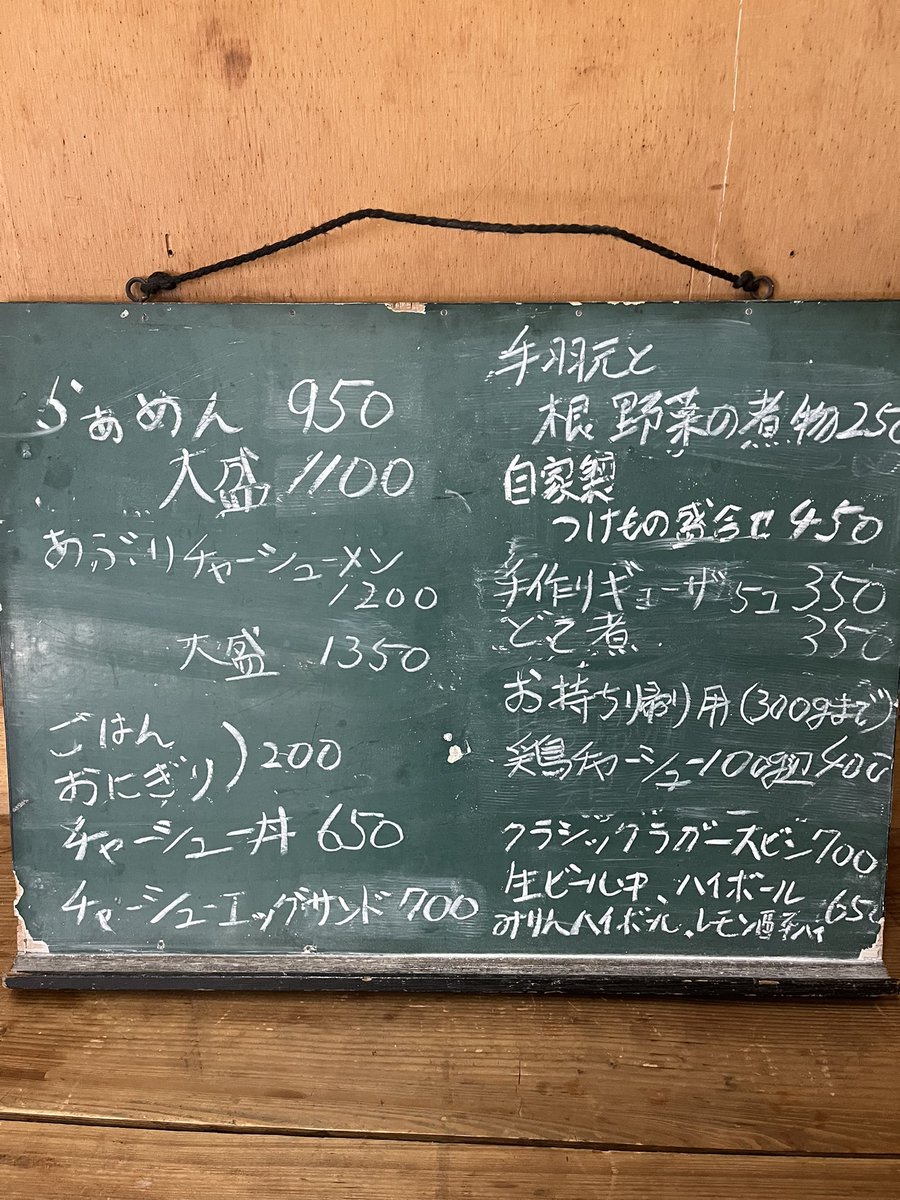 らぁめん 950
大盛 1100
あぶりチャーシューメン
1200
大盛 1350
ごはん
おにぎり)200
チャーシュー丼 650
チャーシューエッグサンド 700
手羽元と
根野菜の煮物 250
自家製
つけもの盛合せ 450
手作りギョーザ 5コ 350
どて煮 350
お持ち帰り用(300gまで)
鶏チャーシュー100g 400
クラシックラガー大ビン700
生ビール中、ハイボール
みりんハイボール、レモン酎ハイ 650